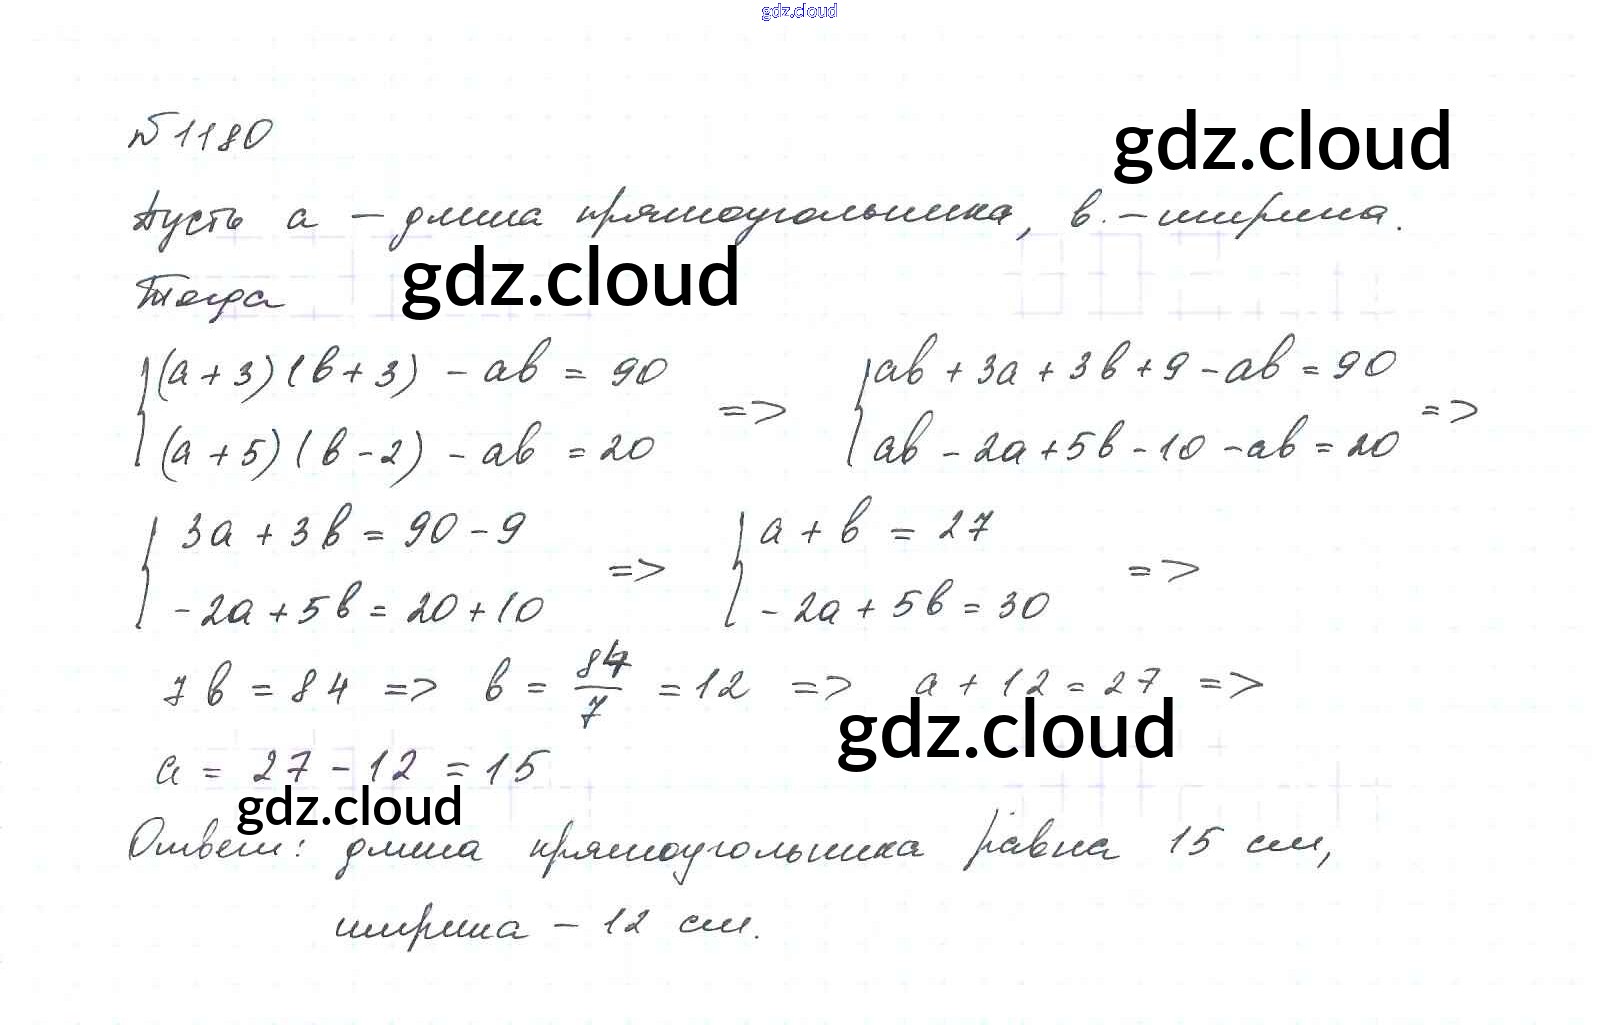 gdz.cloud
№1180
gdz.cloud
Пусть a – длина прямоугольника, b – ширина.
Тогда
gdz.cloud
{(a+3)(b+3) - ab = 90 => {ab+3a+3b+9-ab=90 =>
(a+5)(b-2) - ab = 20 ab-2a+5b-10-ab=20
{3a+3b = 90-9 => {a+b = 27 =>
-2a+5b = 20+10 -2a+5b = 30
7b = 84 => b = 84/7 = 12 => a+12 = 27 =>
gdz.cloud
a = 27-12 = 15
gdz.cloud
Ответ: длина прямоугольника равна 15 см,
ширина – 12 см.